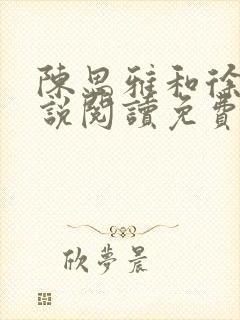 陳思雅和徐
說閱讀免費
欣夢晨